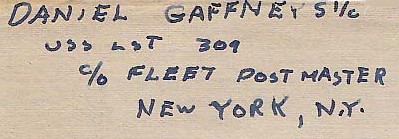 DANIEL GAFFNEY S1/c
USS LST 309
c/o FLEET POSTMASTER
NEW YORK, N.Y.